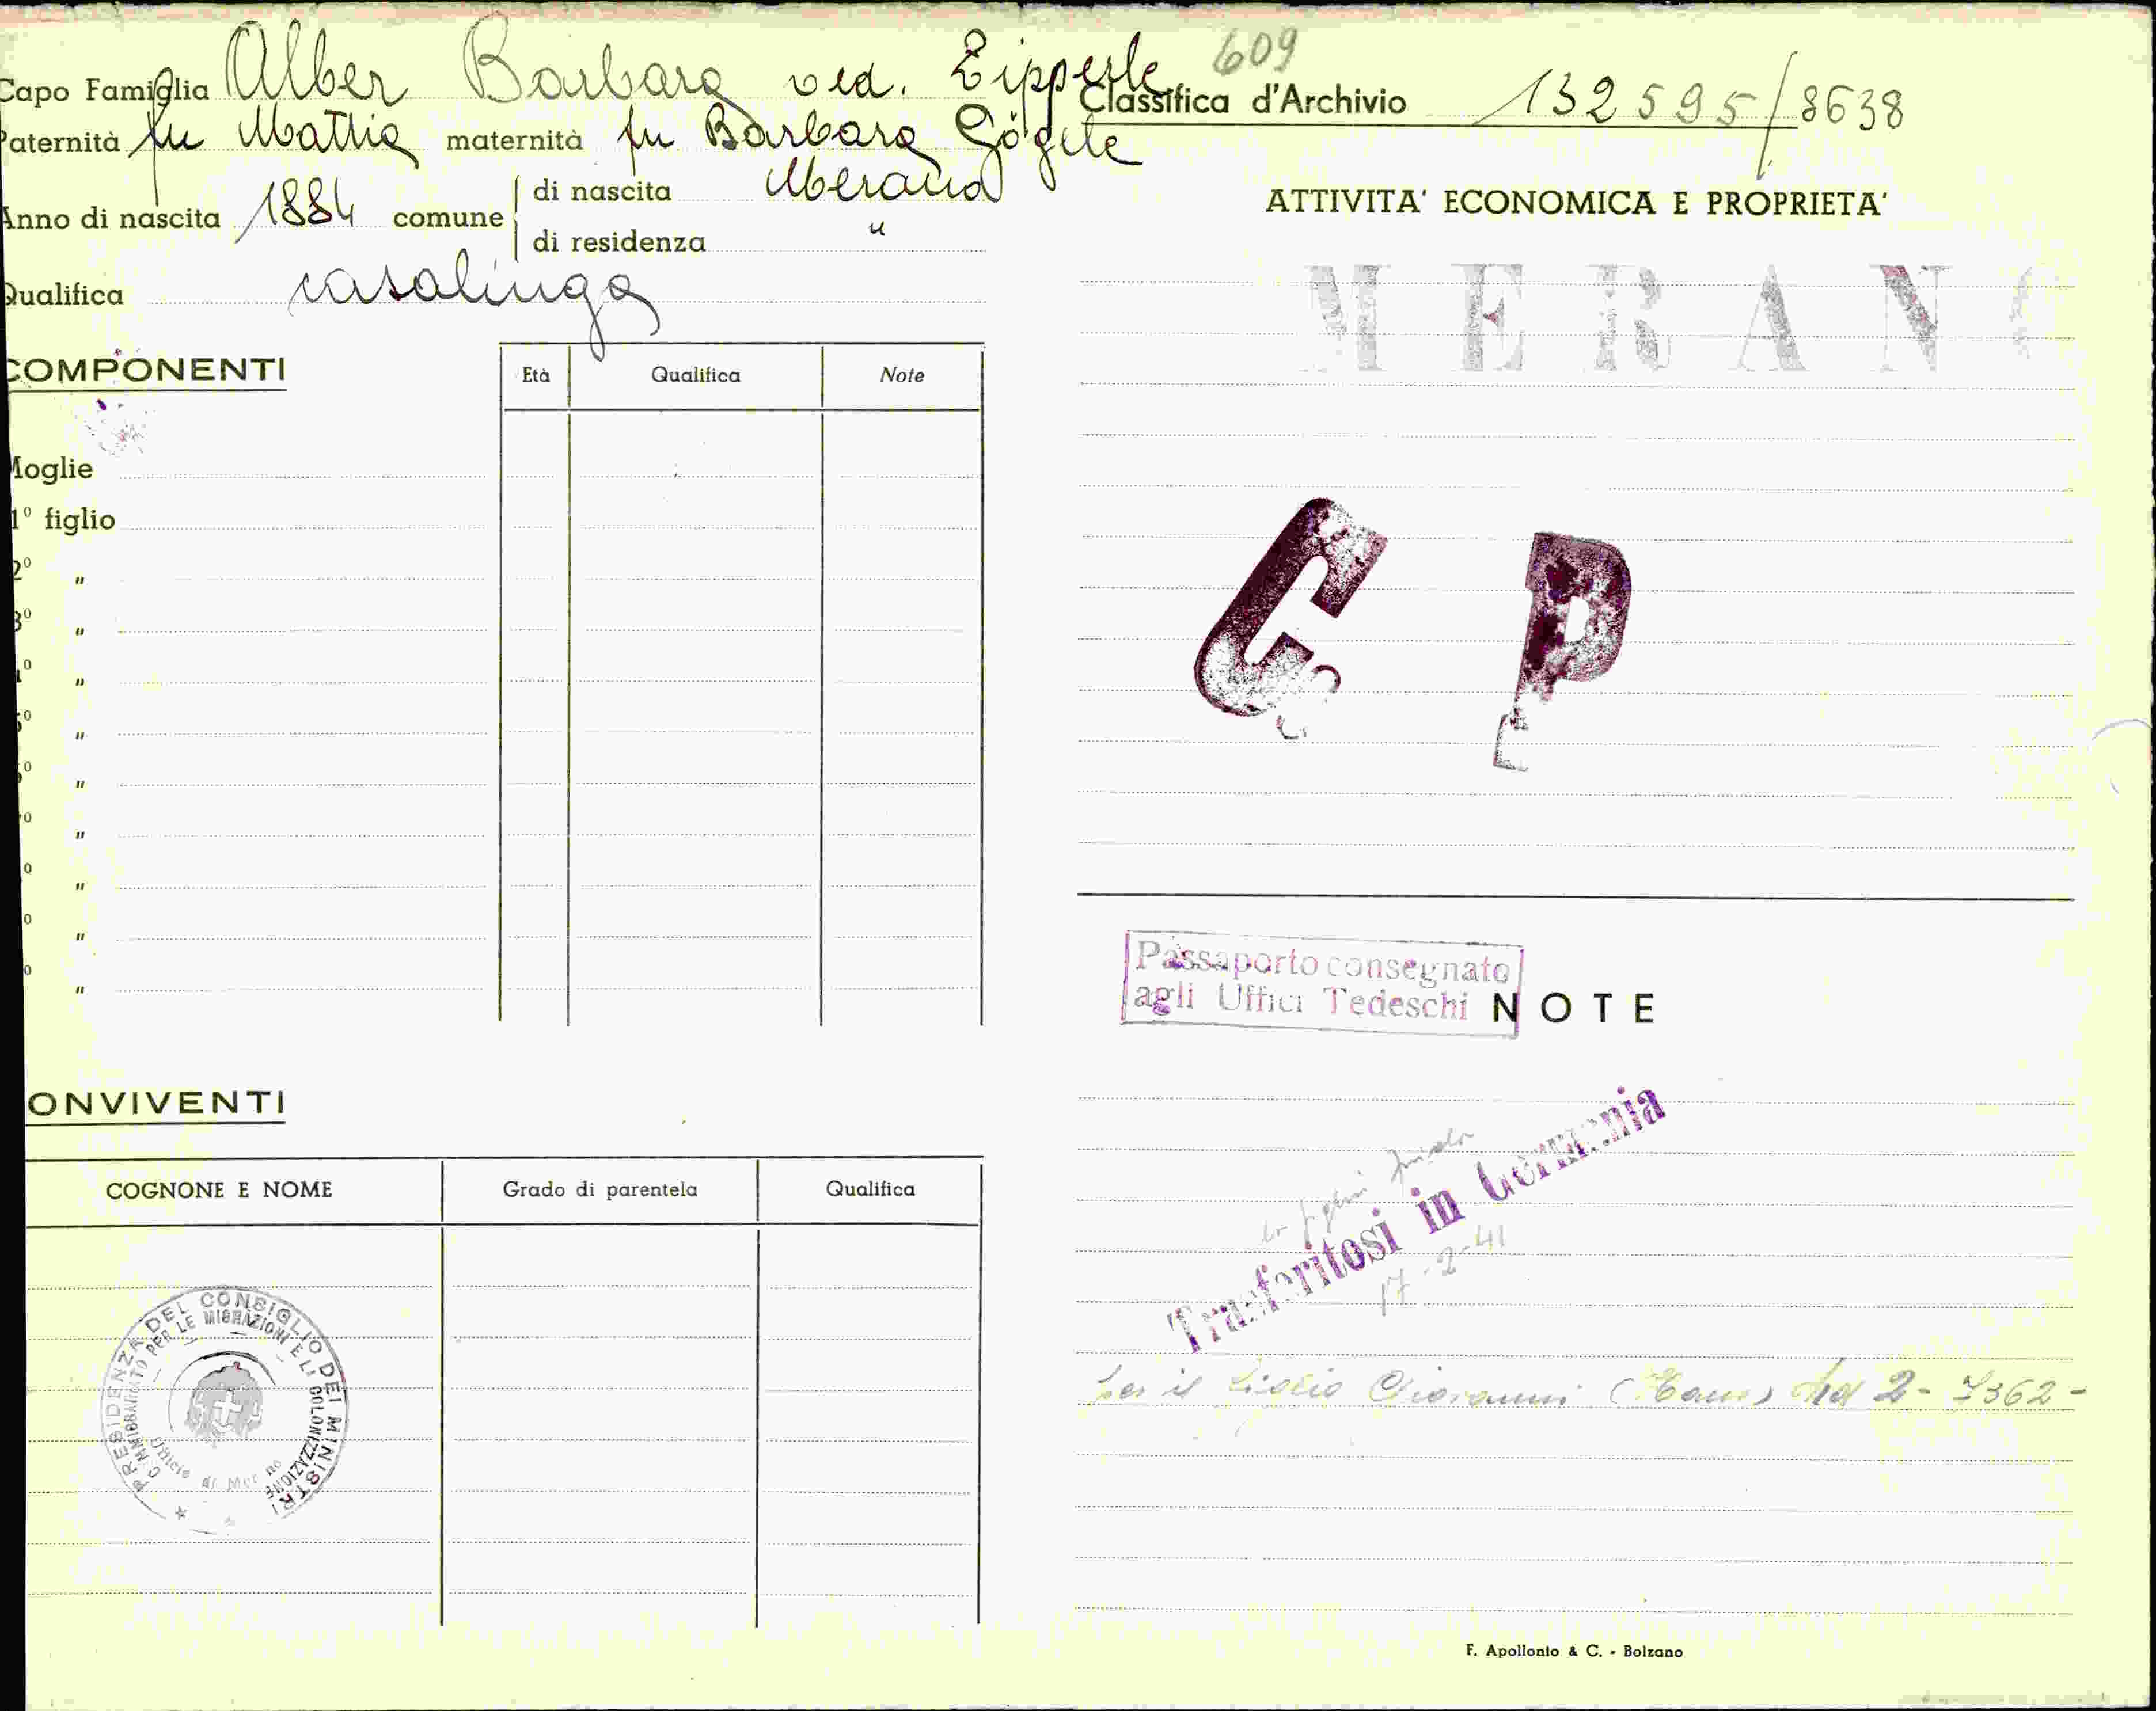 Capo Famiglia Alber Barbara ved. Zipperle
Paternità fu Mattia maternità fu Barbara Gögele
Anno di nascita 1884 comune di nascita Merano
di residenza "
Qualifica casalinga
COMPONENTI
Età Qualifica Note
Moglie
1° figlio
2° "
3° "
4° "
5° "
6° "
7° "
° "
° "
° "
CONVIVENTI
COGNONE E NOME Grado di parentela Qualifica
PRESIDENZA DEL CONSIGLIO DEI MINISTRI
COMMISSARIATO PER LE MIGRAZIONI E LA COLONIZZAZIONE
Ufficio di Merano
609
Classifica d'Archivio 132595/8638
ATTIVITA' ECONOMICA E PROPRIETA'
MERANO
C P
Passaporto consegnato
agli Uffici Tedeschi
NOTE
Trasferitosi in Germania
17-2-41
per il figlio Giovanni (Hans) 2-7362-
F. Apollonio & C. - Bolzano